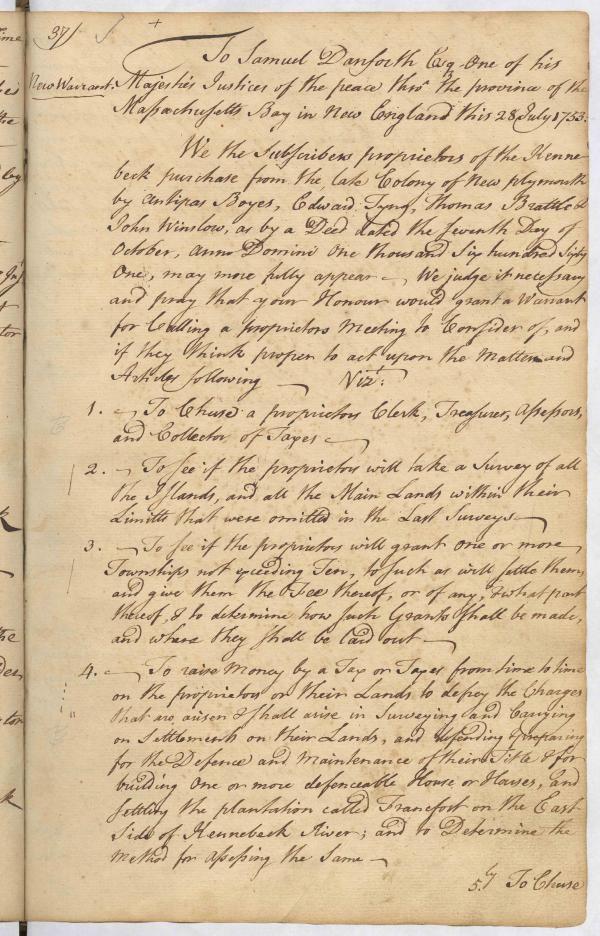 37
New Warrant.
To Samuel Danforth Esqr. One of his
Majesties Justices of the peace thro' the province of the
Massachusetts Bay in New England this 28 July 1753.
We the Subscribers proprietors of the Kenne
beck purchase from the late Colony of New plymouth
by Antipas Boyes, Edward Tyng, Thomas Brattle &
John Winslow, as by a Deed dated the Seventh Day of
October, Anno Domini One thousand Six hundred Sixty
One, may more fully appear — We judge it necessary
and pray that your Honour would grant a Warrant
for Calling a proprietors Meeting to Consider of, and
if they think proper to act upon the Matters and
Articles following — Vizt:
1. — To Chuse a proprietors Clerk, Treasurer, Assessors,
and Collector of Taxes —
2. — To See if the proprietors will take a Survey of all
the Islands, and all the Main Lands within their
Limitts that were omitted in the Last Surveys —
3. — To see if the proprietors will grant One or more
Townships not exceeding Ten, to such as will settle them,
and give them the Fee thereof, or of any, & what part
thereof, & to determine how such Grants shall be made,
and where they shall be laid out —
4. — To raise Money by a Tax or Taxes from time to time
on the proprietors on their Lands to defrey the Charges
that are arisen & shall arise in Surveying and Carrying
on Settlements on their Lands, and defending & preparing
for the Defence and Maintenance of their Title & for
building One or more defenceable House or Houses, and
settling the plantation called Francfort on the East
Side of Kennebeck River; and to Determine the
Method for Assessing the Same —
5.ly To Chuse